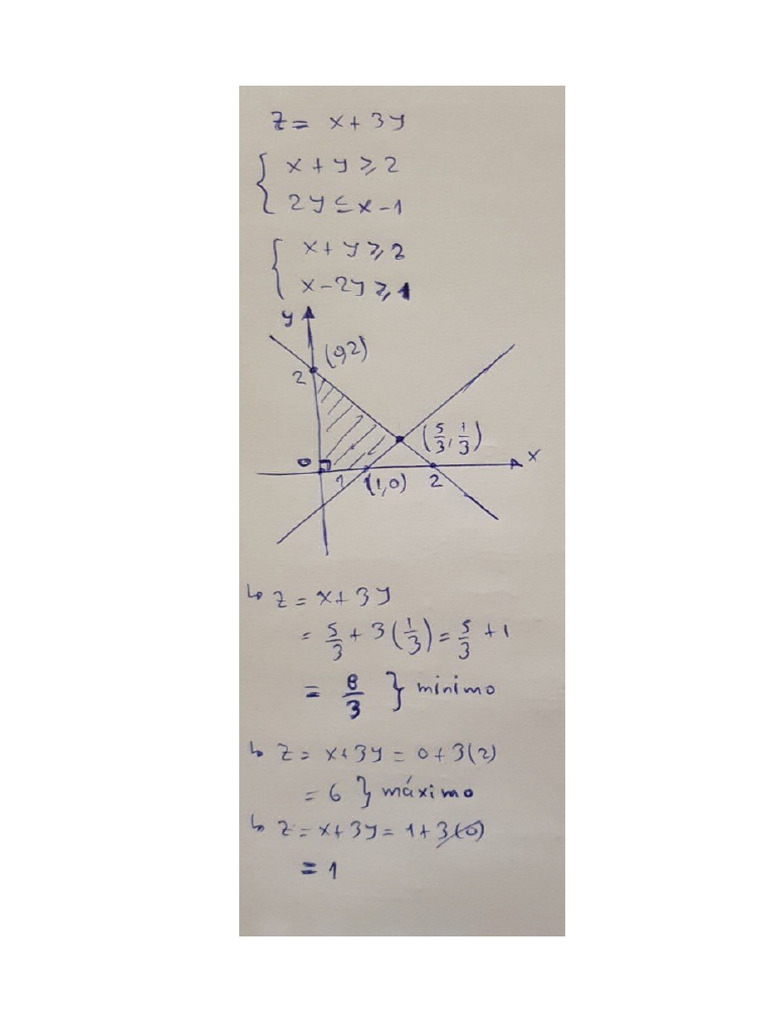 z = x + 3y
x + y ≥ 2
2y ≤ x - 1
x + y ≥ 2
x - 2y ≥ 1
y
(0,2)
2
(5/3, 1/3)
0
x
1 (1,0) 2
↳ z = x + 3y
= 5/3 + 3(1/3) = 5/3 + 1
= 8/3 } mínimo
↳ z = x + 3y = 0 + 3(2)
= 6 } máximo
↳ z = x + 3y = 1 + 3(0)
= 1